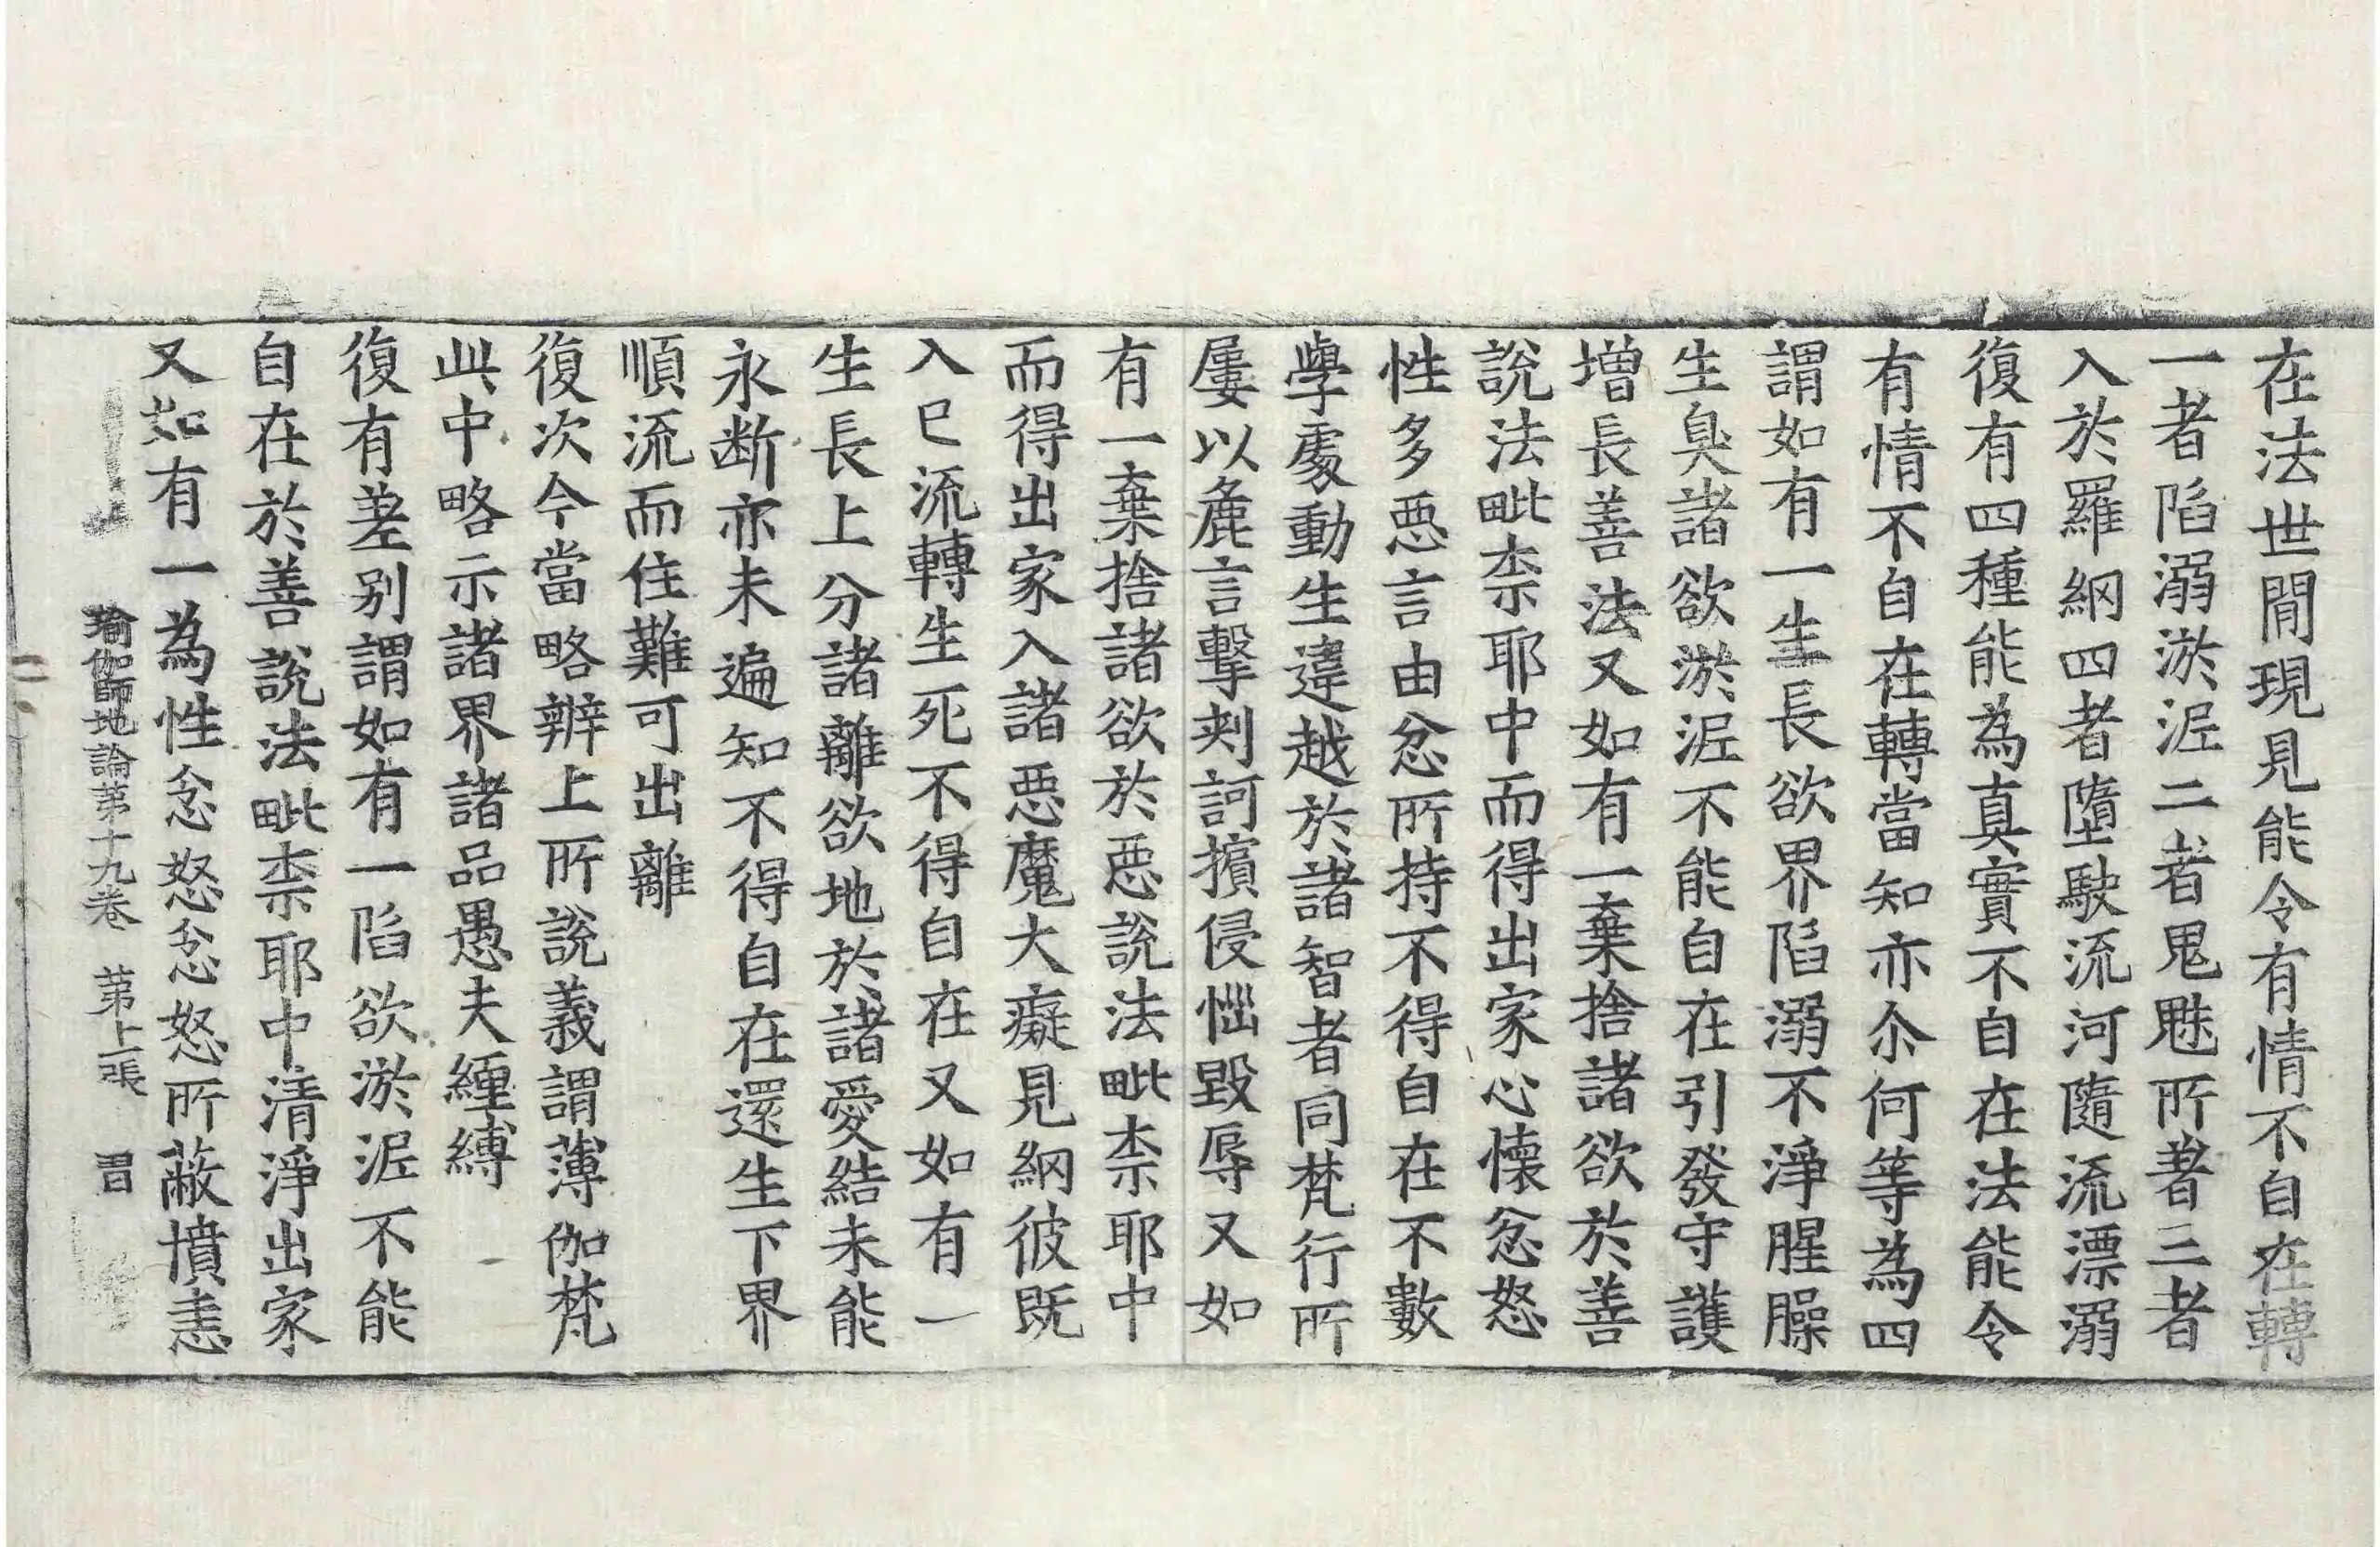 在法世閒現見能令有情不自在轉
一者陷溺淤泥二者鬼魅所著三者
入於羅網四者墮駛流河隨流漂溺
復有四種能為真實不自在法能令
有情不自在轉當知亦尒何等為四
謂如有一生長欲界陷溺不淨腥臊
生臭諸欲淤泥不能自在引發守護
增長善法又如有一棄捨諸欲於善
說法毗柰耶中而得出家心懷忿怒
性多惡言由忿所持不得自在不數
學處動生違越於諸智者同梵行所
屢以麁言擊刺訶擯侵惱毀辱又如
有一棄捨諸欲於惡說法毗柰耶中
而得出家入諸惡魔大癡見網彼旣
入巳流轉生死不得自在又如有一
生長上分諸離欲地於諸愛結未能
永斷亦未遍知不得自在還生下界
順流而住難可出離
復次今當略辨上所說義謂薄伽梵
此中略示諸界諸品愚夫纏縛
復有差別謂如有一陷欲淤泥不能
自在於善說法毗柰耶中清淨出家
又如有一為性忿怒忿怒所蔽憤恚
瑜伽師地論第十九卷 第上張 習